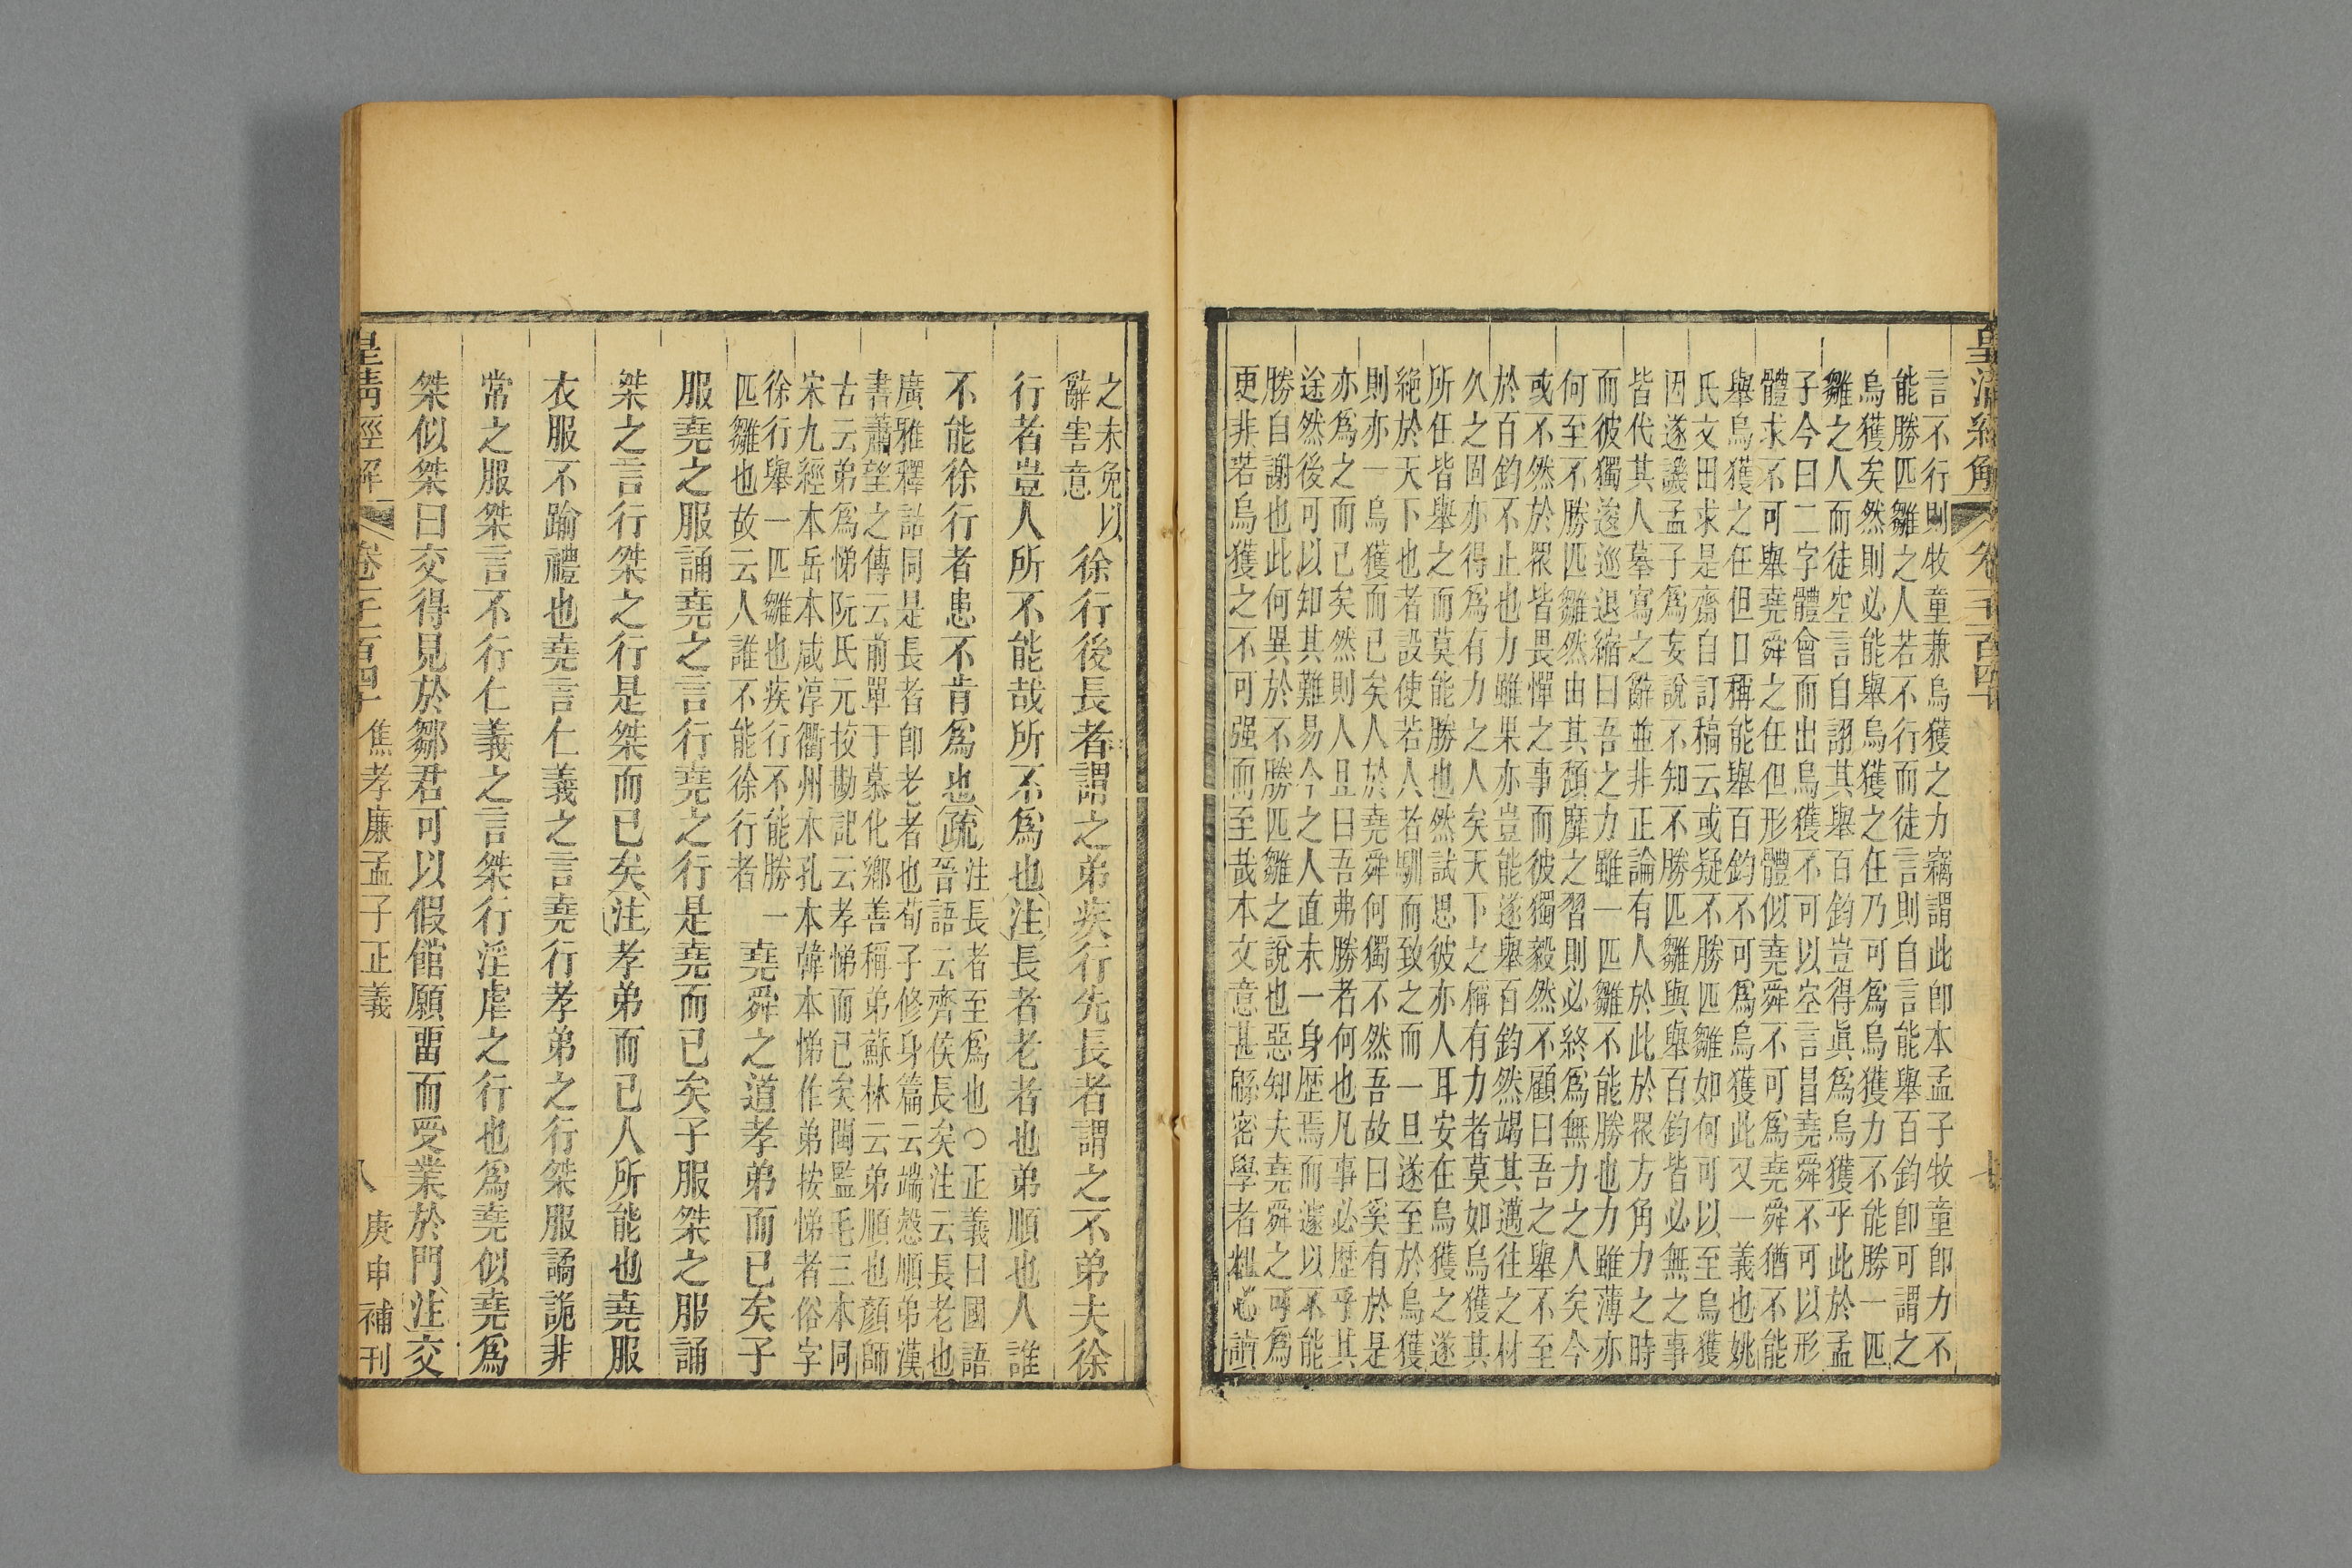 皇清經解 卷千一百四十 七
言不行則牧童兼烏獲之力竊謂此卽本孟子牧童卽力不
能勝匹雛之人若不行而徒言則自言能舉百鈞卽可謂之
烏獲矣然則必能舉烏獲之任乃可爲烏獲力不能勝一匹
雛之人而徒空言自詡其舉百鈞豈得眞爲烏獲乎此於孟
子今曰二字體會而出烏獲不可以空言昌堯舜不可以形
體求不可舉堯舜之任但形體似堯舜不可爲堯舜猶不能
舉烏獲之任但日稱能舉百鈞不可爲烏獲此又一義也姚
氏文田求是齋自訂稿云或疑不勝匹雛如何可以至烏獲
因遂譏孟子爲妄說不知不勝匹雛與舉百鈞皆必無之事
皆代其人摹寫之辭並非正論有人於此於衆方角力之時
而彼獨逡巡退縮曰吾之力雖一匹雛不能勝也力雖薄亦
何至不勝匹雛然由其頹靡之習則必終爲無力之人矣今
或不然於衆皆畏憚之事而彼獨毅然不顧曰吾之舉不至
於百鈞不止也力雖果亦豈能遂舉百鈞然竭其邁往之材
久之固亦得爲有力之人矣天下之稱有力者莫如烏獲其
所任皆舉之而莫能勝也然試思彼亦人耳安在烏獲之遂
絕於天下也者設使若人者馴而致之而一旦遂至於烏獲
則亦一烏獲而已矣人於堯舜何獨不然吾故曰奚有於是
亦爲之而已矣然則人且曰吾弗勝者何也凡事必歷乎其
途然後可以知其難易今之人直未一身歷焉而遽以不能
勝自謝也此何異於不勝匹雛之說也惡知夫堯舜之可爲
更非若烏獲之不可强而至哉本文意甚緜密學者粗心讀
之未免以
辭害意
徐行後長者謂之弟疾行先長者謂之不弟夫徐
行者豈人所不能哉所不爲也注長者老者也弟順也人誰
不能徐行者患不肯爲也疏
注長者至爲也○正義曰國語
晉語云齊侯長矣注云長老也
廣雅釋詁同是長者卽老者也荀子修身篇云端愨順弟漢
書蕭望之傳云前單于慕化鄉善稱弟蘇林云弟順也顏師
古云弟爲悌阮氏元挍勘記云孝悌而已矣閩監毛三本同
宋九經本岳本咸淳衢州本孔本韓本悌作弟按悌者俗字
徐行舉一匹雛也疾行不能勝一
匹雛也故云人誰不能徐行者
堯舜之道孝弟而已矣子
服堯之服誦堯之言行堯之行是堯而已矣子服桀之服誦
桀之言行桀之行是桀而已矣注孝弟而已人所能也堯服
衣服不踰禮也堯言仁義之言堯行孝弟之行桀服譎詭非
常之服桀言不行仁義之言桀行淫虐之行也爲堯似堯爲
桀似桀曰交得見於鄒君可以假館願畱而受業於門注交
皇清經解 卷一千一百四十 焦孝廉孟子正義 八 庚申補刊